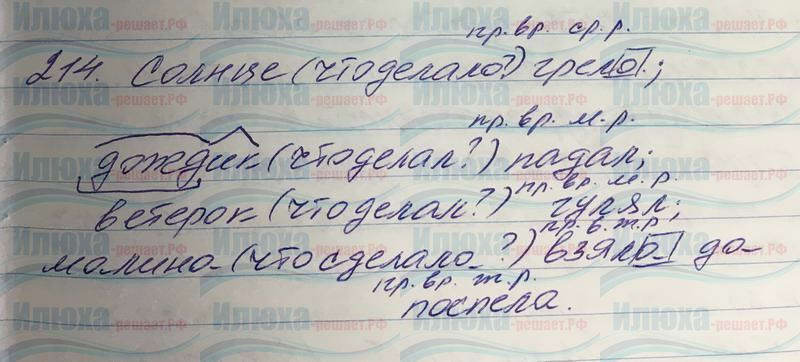 пр. вр. ср. р.
214. Солнце (что делало?) грело;
пр. вр. м. р.
дождик (что делал?) падал;
пр. вр. м. р.
ветерок (что делал?) гулял;
пр. в. ж. р.
малина (что сделала?) взяла да
пр. вр. ж. р.
поспела.